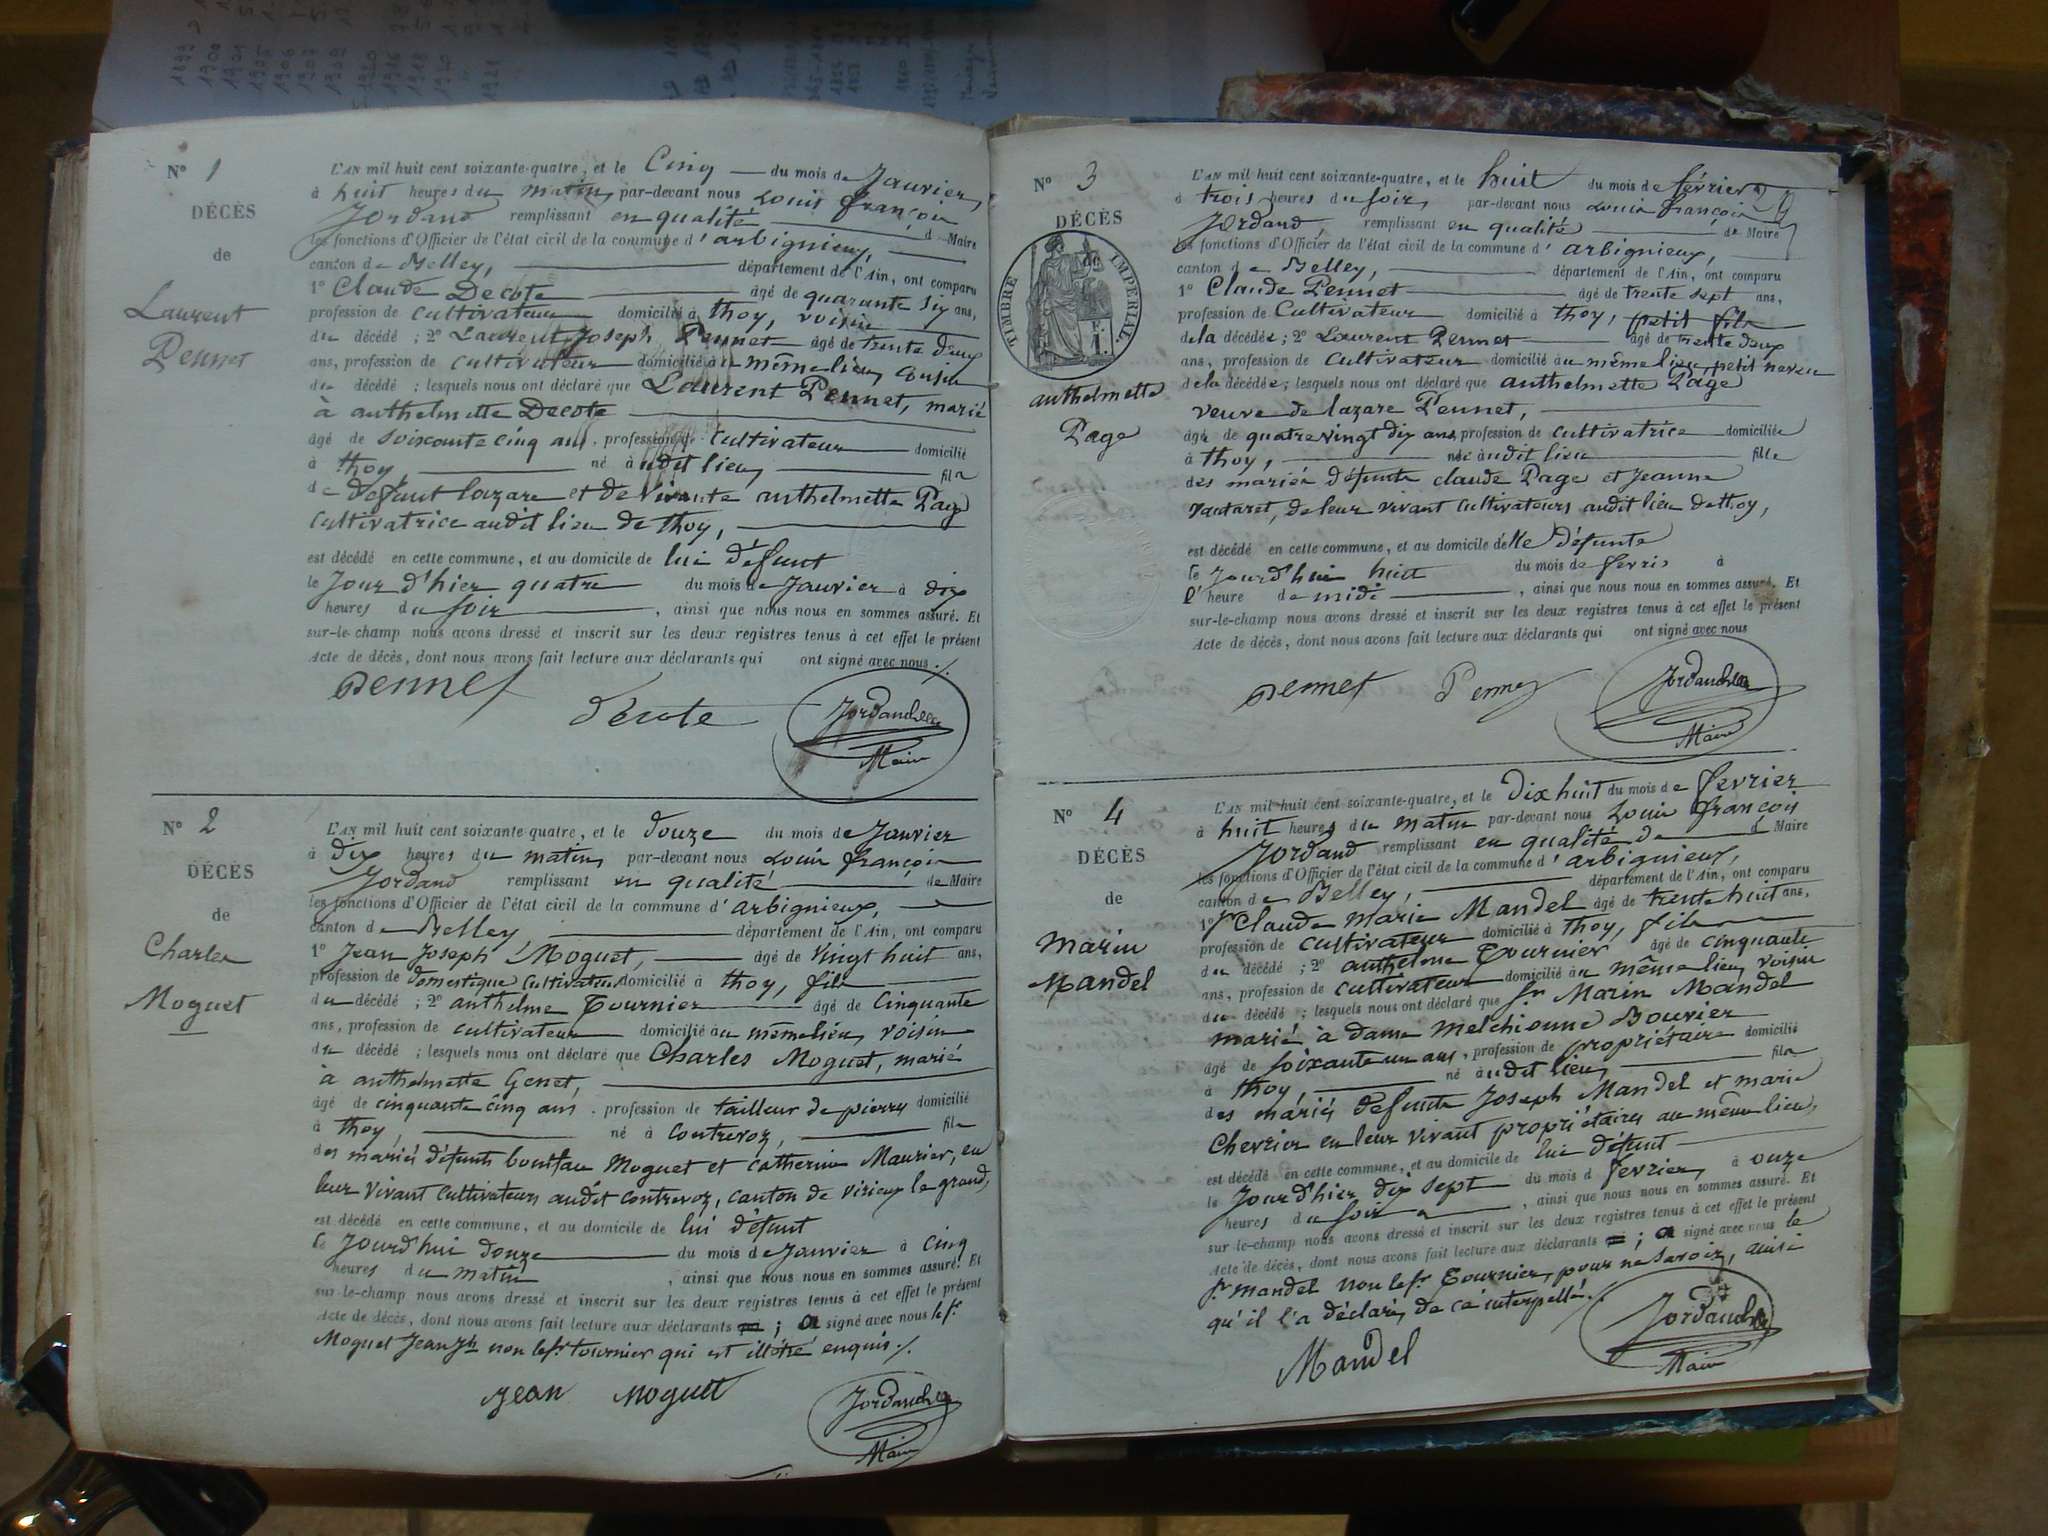 N° 1
DÉCÈS
de
Laurent
Pennet
L'AN mil huit cent soixante-quatre, et le Cinq du mois de Janvier,
à huit heures du matin, par-devant nous Louis françois
Jordand remplissant en qualité d Maire
les fonctions d'Officier de l'état civil de la commune d'arbignieux,
canton de Belley, département de l'Ain, ont comparu
1° Claude Decote âgé de quarante six ans,
profession de cultivateur domicilié à thoy, voisin
du décédé ; 2° Laurent Joseph Pennet âgé de trente deux
ans, profession de cultivateur domicilié au même lieu, cousin
du décédé ; lesquels nous ont déclaré que Laurent Pennet, marié
à anthelmette Decote
âgé de soixante cinq ans, profession de cultivateur domicilié
à thoy, né audit lieu, fils
de defunt lazare et de vivante anthelmette Page
cultivatrice audit lieu de thoy,
est décédé en cette commune, et au domicile de lui défunt
le Jour d'hier quatre du mois de Janvier à dix
heures du soir, ainsi que nous nous en sommes assuré. Et
sur-le-champ nous avons dressé et inscrit sur les deux registres tenus à cet effet le présent
Acte de décès, dont nous avons fait lecture aux déclarants qui ont signé avec nous ./.
Pennet
Décote
Jordand
Maire
N° 2
DÉCÈS
de
Charles
Moguet
L'AN mil huit cent soixante-quatre, et le douze du mois de Janvier
à dix heures du matin, par-devant nous Louis françois
Jordand remplissant en qualité de Maire
les fonctions d'Officier de l'état civil de la commune d'arbignieux,
canton de Belley département de l'Ain, ont comparu
1° Jean Joseph Moguet, âgé de vingt huit ans,
profession de domestique cultivateur domicilié à thoy, fils
du décédé ; 2° anthelme Tournier âgé de cinquante
ans, profession de cultivateur domicilié au même lieu, voisin
du décédé ; lesquels nous ont déclaré que Charles Moguet, marié
à anthelmette Genet,
âgé de cinquante cinq ans, profession de tailleur de pierre domicilié
à thoy, né à contrevoz, fils
des mariés défunts Moguet et catherine Maurier, en
leur vivant cultivateurs audit contrevoz, canton de virieux le grand,
est décédé en cette commune, et au domicile de lui défunt
le Jourd'hui douze du mois de Janvier à cinq
heures du matin, ainsi que nous nous en sommes assuré. Et
sur-le-champ nous avons dressé et inscrit sur les deux registres tenus à cet effet le présent
Acte de décès, dont nous avons fait lecture aux déclarants ; a signé avec nous le sr
Moguet Jean Jh non le sr tournier qui est illétré enquis ./.
Jean Moguet
Jordand
Maire
N° 3
DÉCÈS
de
TIMBRE IMPERIAL.
anthelmette
Page
L'AN mil huit cent soixante-quatre, et le huit du mois de février
à trois heures du soir, par-devant nous Louis françois
Jordand, remplissant en qualité de Maire
les fonctions d'Officier de l'état civil de la commune d'arbignieux,
canton de Belley, département de l'Ain, ont comparu
1° Claude Pennet âgé de trente sept ans,
profession de Cultivateur domicilié à thoy, petit fils
de la décédée ; 2° Laurent Pennet âgé de trente deux
ans, profession de cultivateur domicilié au même lieu, petit neveu
de la décédée ; lesquels nous ont déclaré que anthelmette Page
veuve de lazare Pennet,
âgée de quatre vingt dix ans, profession de cultivatrice domiciliée
à thoy, née audit lieu fille
des mariés défunts claude Page et Jeanne
Vautaret, de leur vivant cultivateurs audit lieu de thoy,
est décédé en cette commune, et au domicile de lle défunte
le Jourd'hui huit du mois de fevrier à
l'heure de midi, ainsi que nous nous en sommes assuré. Et
sur-le-champ nous avons dressé et inscrit sur les deux registres tenus à cet effet le présent
Acte de décès, dont nous avons fait lecture aux déclarants qui ont signé avec nous
Pennet Pennet
Jordand
Maire
N° 4
DÉCÈS
de
Marin
Mandel
L'AN mil huit cent soixante-quatre, et le Dix huit du mois de fevrier
à huit heures du matin par-devant nous Louis françois
Jordand remplissant en qualité de d Maire
les fonctions d'Officier de l'état civil de la commune d'arbignieux,
canton de Belley, département de l'Ain, ont comparu
1° sr Claude Marie Mandel âgé de trente huit ans,
profession de cultivateur domicilié à thoy, fils
du décédé ; 2° anthelme Tournier âgé de cinquante
ans, profession de cultivateur domicilié au même lieu, voisin
du décédé ; lesquels nous ont déclaré que sr Marin Mandel
marié à dame Melchionne Bouvier
âgé de soixante un ans, profession de propriétaire domicilié
à thoy, né audit lieu, fils
des mariés defunts Joseph Mandel et marie
Chevrier en leur vivant propriétaires au même lieu,
est décédé en cette commune, et au domicile de lui défunt
le Jour d'hier dix sept du mois d fevrier, à onze
heures du soir, ainsi que nous nous en sommes assuré. Et
sur-le-champ nous avons dressé et inscrit sur les deux registres tenus à cet effet le présent
Acte de décès, dont nous avons fait lecture aux déclarants ; a signé avec nous le
sr mandel non le sr Tournier, pour ne savoir, ainsi
qu'il l'a déclaré, de ce interpellé ./.
Mandel
Jordand
Maire